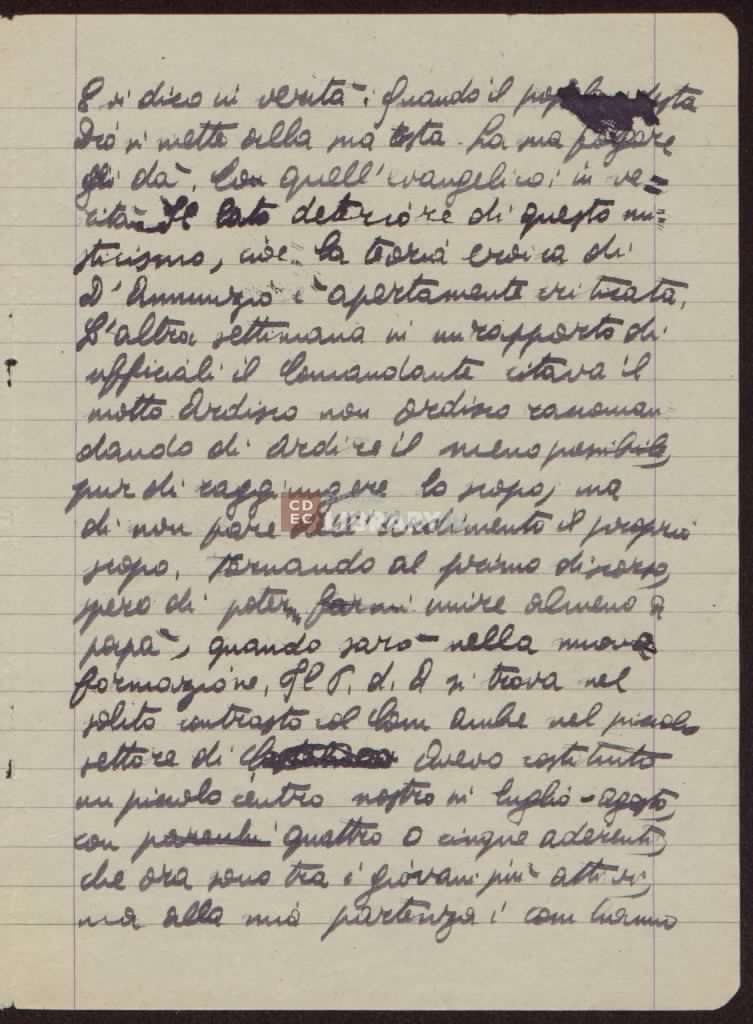 E vi dico in verità: Quando il desta
Dio si mette alla sua testa. La sua folgore
gli dà. Con quell'evangelico: in ve=
rità. Il lato deteriore di questo mi=
sticismo, cioè la teoria eroica di
D'Annunzio è apertamente criticata.
L'altra settimana in un rapporto di
ufficiali il Comandante citava il
motto Ardisco non ordisco raccoman
dando di ardire il meno possibile,
pur di raggiungere lo scopo, ma
di non fare dell'ardimento il proprio
scopo. Tornando al primo discorso,
spero di potermi unire almeno a
papà, quando sarò nella nuova
formazione. Il P. d. A si trova nel
solito contrasto col Com anche nel piccolo
settore di Avevo costituito
un piccolo centro nostro in luglio-agosto,
con quattro o cinque aderenti,
che ora sono tra i giovani più attivi,
ma alla mia partenza i com hanno
CDEC
LIBRARY